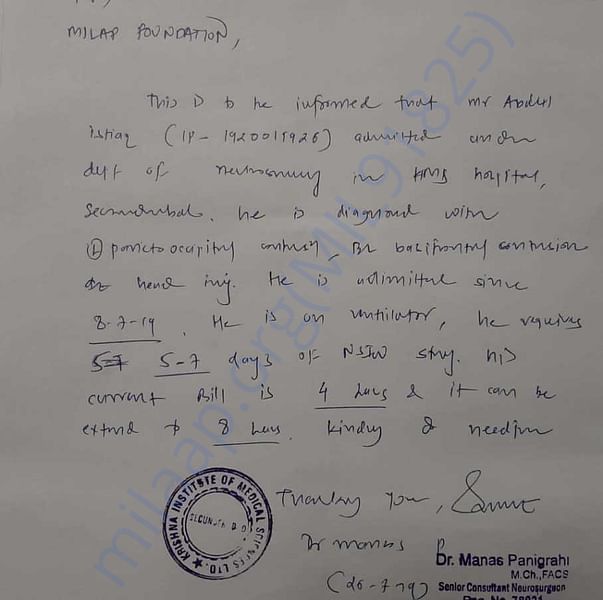 MILAP FOUNDATION,
This is to be informed that mr Abdul
ishaq (IP - 1920015926) admitted under
dept of neurosurgery in KIMS hospital,
Secunderbad. he is diagnosed with
(L) parieto occipital contusion, B/L basifrontal contusion
head inj. He is admitted since
8-7-19. He is on ventilator, he requires
5-7 days of NSICU stay. his
current Bill is 4 Lacs & it can be
extend to 8 Lacs. kindly do needful
Thanking you,
Dr Manas P
(26-7-19)
KRISHNA INSTITUTE OF MEDICAL SCIENCES LTD.
Dr. Manas Panigrahi
M.Ch.,FACS
Senior Consultant Neurosurgeon
milaap.org(MIL91825)